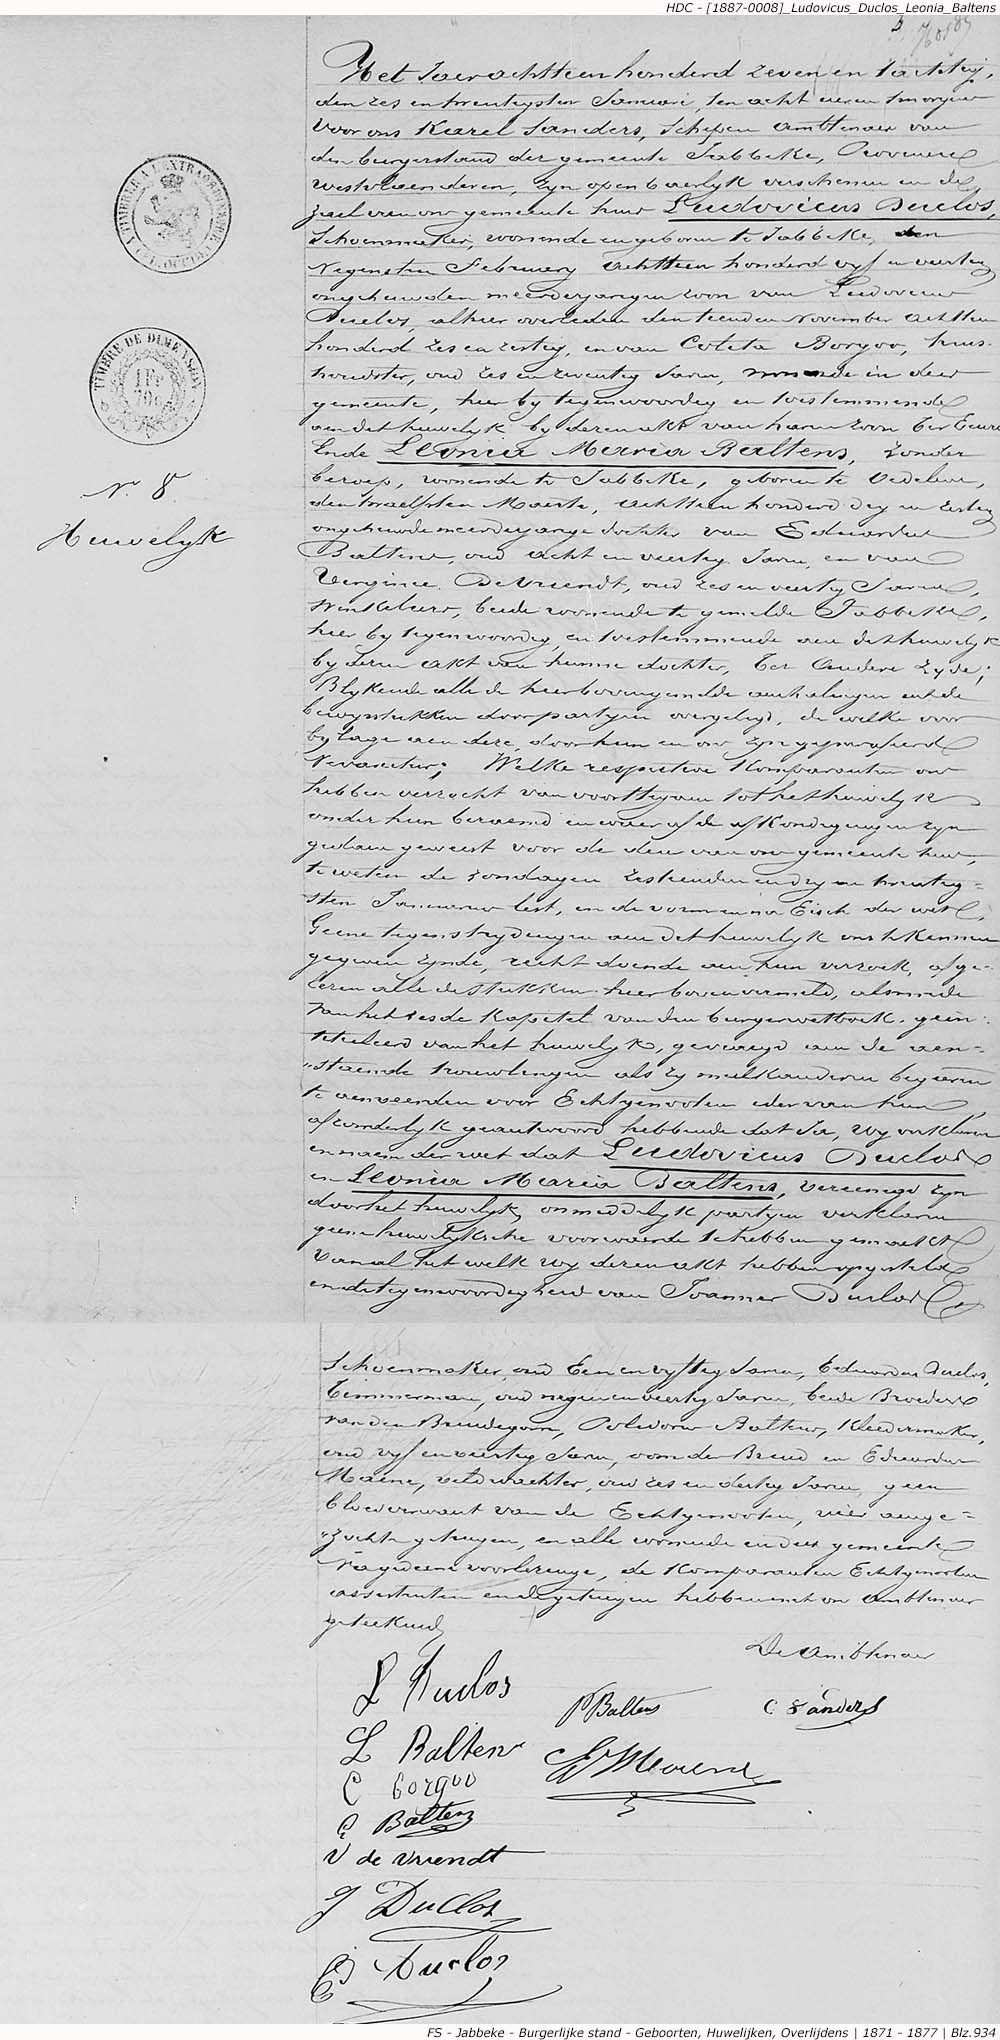 HDC - [1887-0008]_Ludovicus_Duclos_Leonia_Baltens
Het Jaer achttien honderd zeven en tachtig,
den zes en twintigsten Januari, ten acht uren smorgens
voor ons Karel Sanders, Schepen Ambtenaer van
den burgerstand der gemeente Jabbeke, Provincie
westvlaenderen, zyn openbaerlyk verschenen in de
zael van ons gemeente huis Ludovicus Duclos,
Schoenmaker, wonende en geboren te Jabbeke, den
Negensten February achttien honderd vyf en veertig
ongehuwden meerderjarigen zoon van Ludovicus
Duclos, alhier overleden den tienden November achttien
honderd zes en zestig, en van Coleta Borgoo, huis-
houdster, oud zes en zeventig Jaren, wonende in deze
gemeente, hier by tegenwoordig en toestemmende
aen det huwelyk by dezen akt van haren zoon ter Eenre
Ende Leonia Maria Baltens, Zonder
beroep, wonende te Jabbeke, geboren te Oedelem,
den twaelfsten Maerte, achttien honderd dry en zestig
ongehuwde meerderjarige dochter van Eduardus
Baltens, oud acht en veertig Jaren, en van
Verginie De Vriendt, oud zes en veertig Jaren,
Winkeliers, beide wonende te gemelde Jabbeke,
hier by tegenwoordig, en toestemmende aen det huwelyk
by dezen akt van hunne dochter, ter Andere zyde;
Blykende alle de hierbovengemelde aenhalingen uit de
bewysstukken door partyen overgelegd, de welke voor
bylage aen deze, door hun en ons, zyn geparafeerd
Nevarietur; Welke respective Komparanten ons
hebben verzocht van voorttegaen tot het huwelyk
onder hun beraemd en waer of de afkondigingen zyn
gedaen geweest voor de deur van ons gemeente huis,
te weten de zondagen zestienden en dry en twintig=
sten Januarius lest, en de vorm en na Eisch der wet,
Geene tegenstrydingen aen det huwelyk ons te kennen
gegeven zynde, recht doende aen hun verzoek, afge-
lezen alle de stukken hierboven vermeld, alsmede
van het zesde kapitel van den burgerwetboek gein-
tituleerd van het huwelyk, gevraegd aen de aen=
=staende trouwlingen als zy malkanderen begeeren
te aenveerden voor Echtgenooten ieder van hun
afzonderlyk geantwoord hebbende dat Ja, Wy verklaren
en naem der wet dat Ludovicus Duclos
en Leonia Maria Baltens, vereenigd zyn
door het huwelyk, onmiddelyk partyen verklaren
geene huwelyksche voorwaerde te hebben gemaekt
Van al het welk wy dezen akt hebben opgesteld
en de tegenwoordigheid van Joannes Duclos
Schoenmaker, oud Een en vyftig Jaren, Eduardus Duclos,
Timmerman, oud negen en veertig Jaren, beide Broeders
van den Bruidegom, Polidorus Baltens, Kleedermaker,
oud vyf en veertig Jaren, oom der Bruid en Eduardus
Maene, veldwachter, oud zes en dertig Jaren, geen
bloedverwant van de Echtgenooten, vier aenge=
=zochte getuigen, en alle wonende in deze gemeente
Na gedaene voorlezinge, de Komparanten Echtgenooten
assistenten en de getuigen hebben met ons Ambtenaer
geteekend
De Ambtenaer
L Duclos
P Baltens
C Sanders
L Baltens
C borgoo
E Baltens
V de vriendt
J Duclos
E Duclos
TIMBRE DE DIMENSION
1 Fr
N. 8
Huwelyk
FS - Jabbeke - Burgerlijke stand - Geboorten, Huwelijken, Overlijdens | 1871 - 1877 | Blz.934